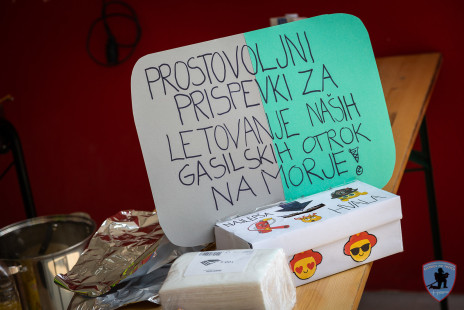 PROSTOVOLJNI
PRISPEVKI ZA
LETOVANJE NAŠIH
GASILSKIH OTROK
NA MORJE!
NAJLEPŠA
HVALA